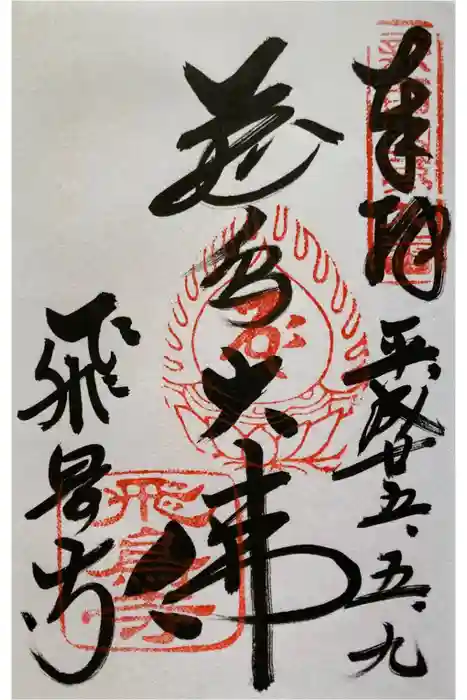 奉拝
平成廿五、五、九
飛鳥大佛
飛鳥寺
飛鳥寺